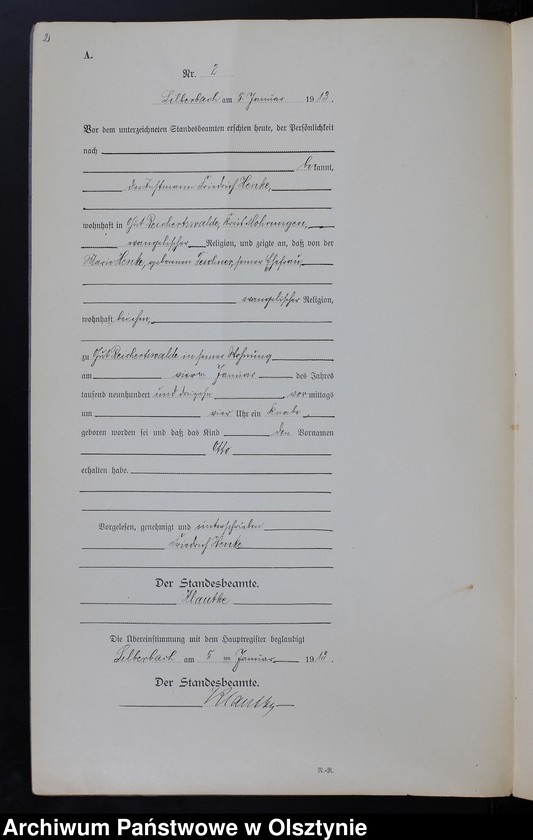 2
A.
Nr. 2
Silberbach am 5 Januar 1913.
Vor dem unterzeichneten Standesbeamten erschien heute, der Persönlichkeit
nach
bekannt,
der Instmann Friedrich Henke,
wohnhaft in Gut Reichertswalde, Kreis Mohrungen,
evangelischer Religion, und zeigte an, daß von der
Marie Henke, geborenen Teschner, seiner Ehefrau,
evangelischer Religion,
wohnhaft bei ihm,
zu Gut Reichertswalde in seiner Wohnung
am vierten Januar des Jahres
tausend neunhundert und dreizehn vormittags
um vier Uhr ein Knabe
geboren worden sei und daß das Kind den Vornamen
Otto
erhalten habe.
Vorgelesen, genehmigt und unterschrieben
Friedrich Henke
Der Standesbeamte.
Klautke
Die Übereinstimmung mit dem Hauptregister beglaubigt
Silberbach am 5 ten Januar 1913.
Der Standesbeamte.
Klautke
N.-R.
Archiwum Państwowe w Olsztynie